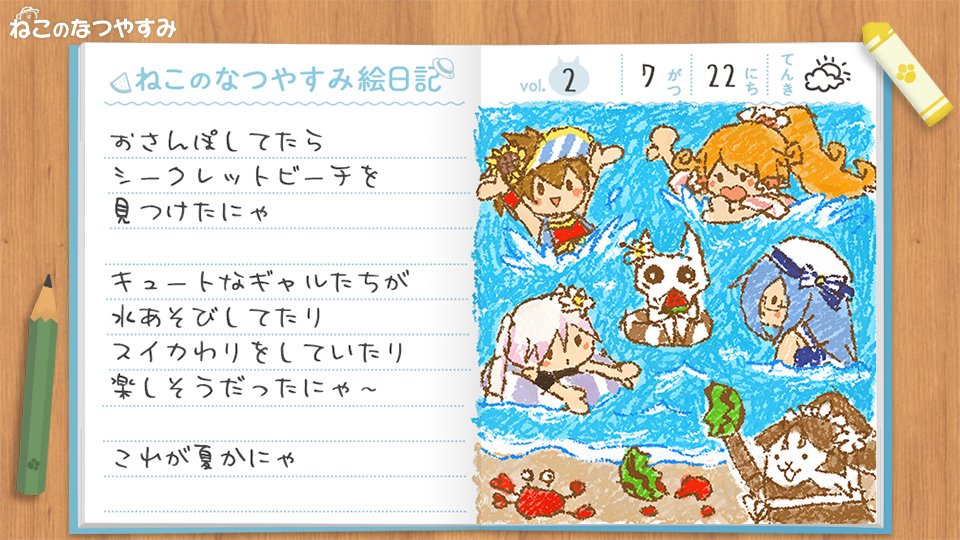 ねこのなつやすみ
ねこのなつやすみ絵日記
vol. 2 7 がつ 22 にち てんき
おさんぽしてたら
シークレットビーチを
見つけたにゃ
キュートなギャルたちが
水あそびしてたり
スイカわりをしていたり
楽しそうだったにゃ～
これが夏かにゃ